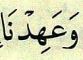 وَعَهِدْنَا